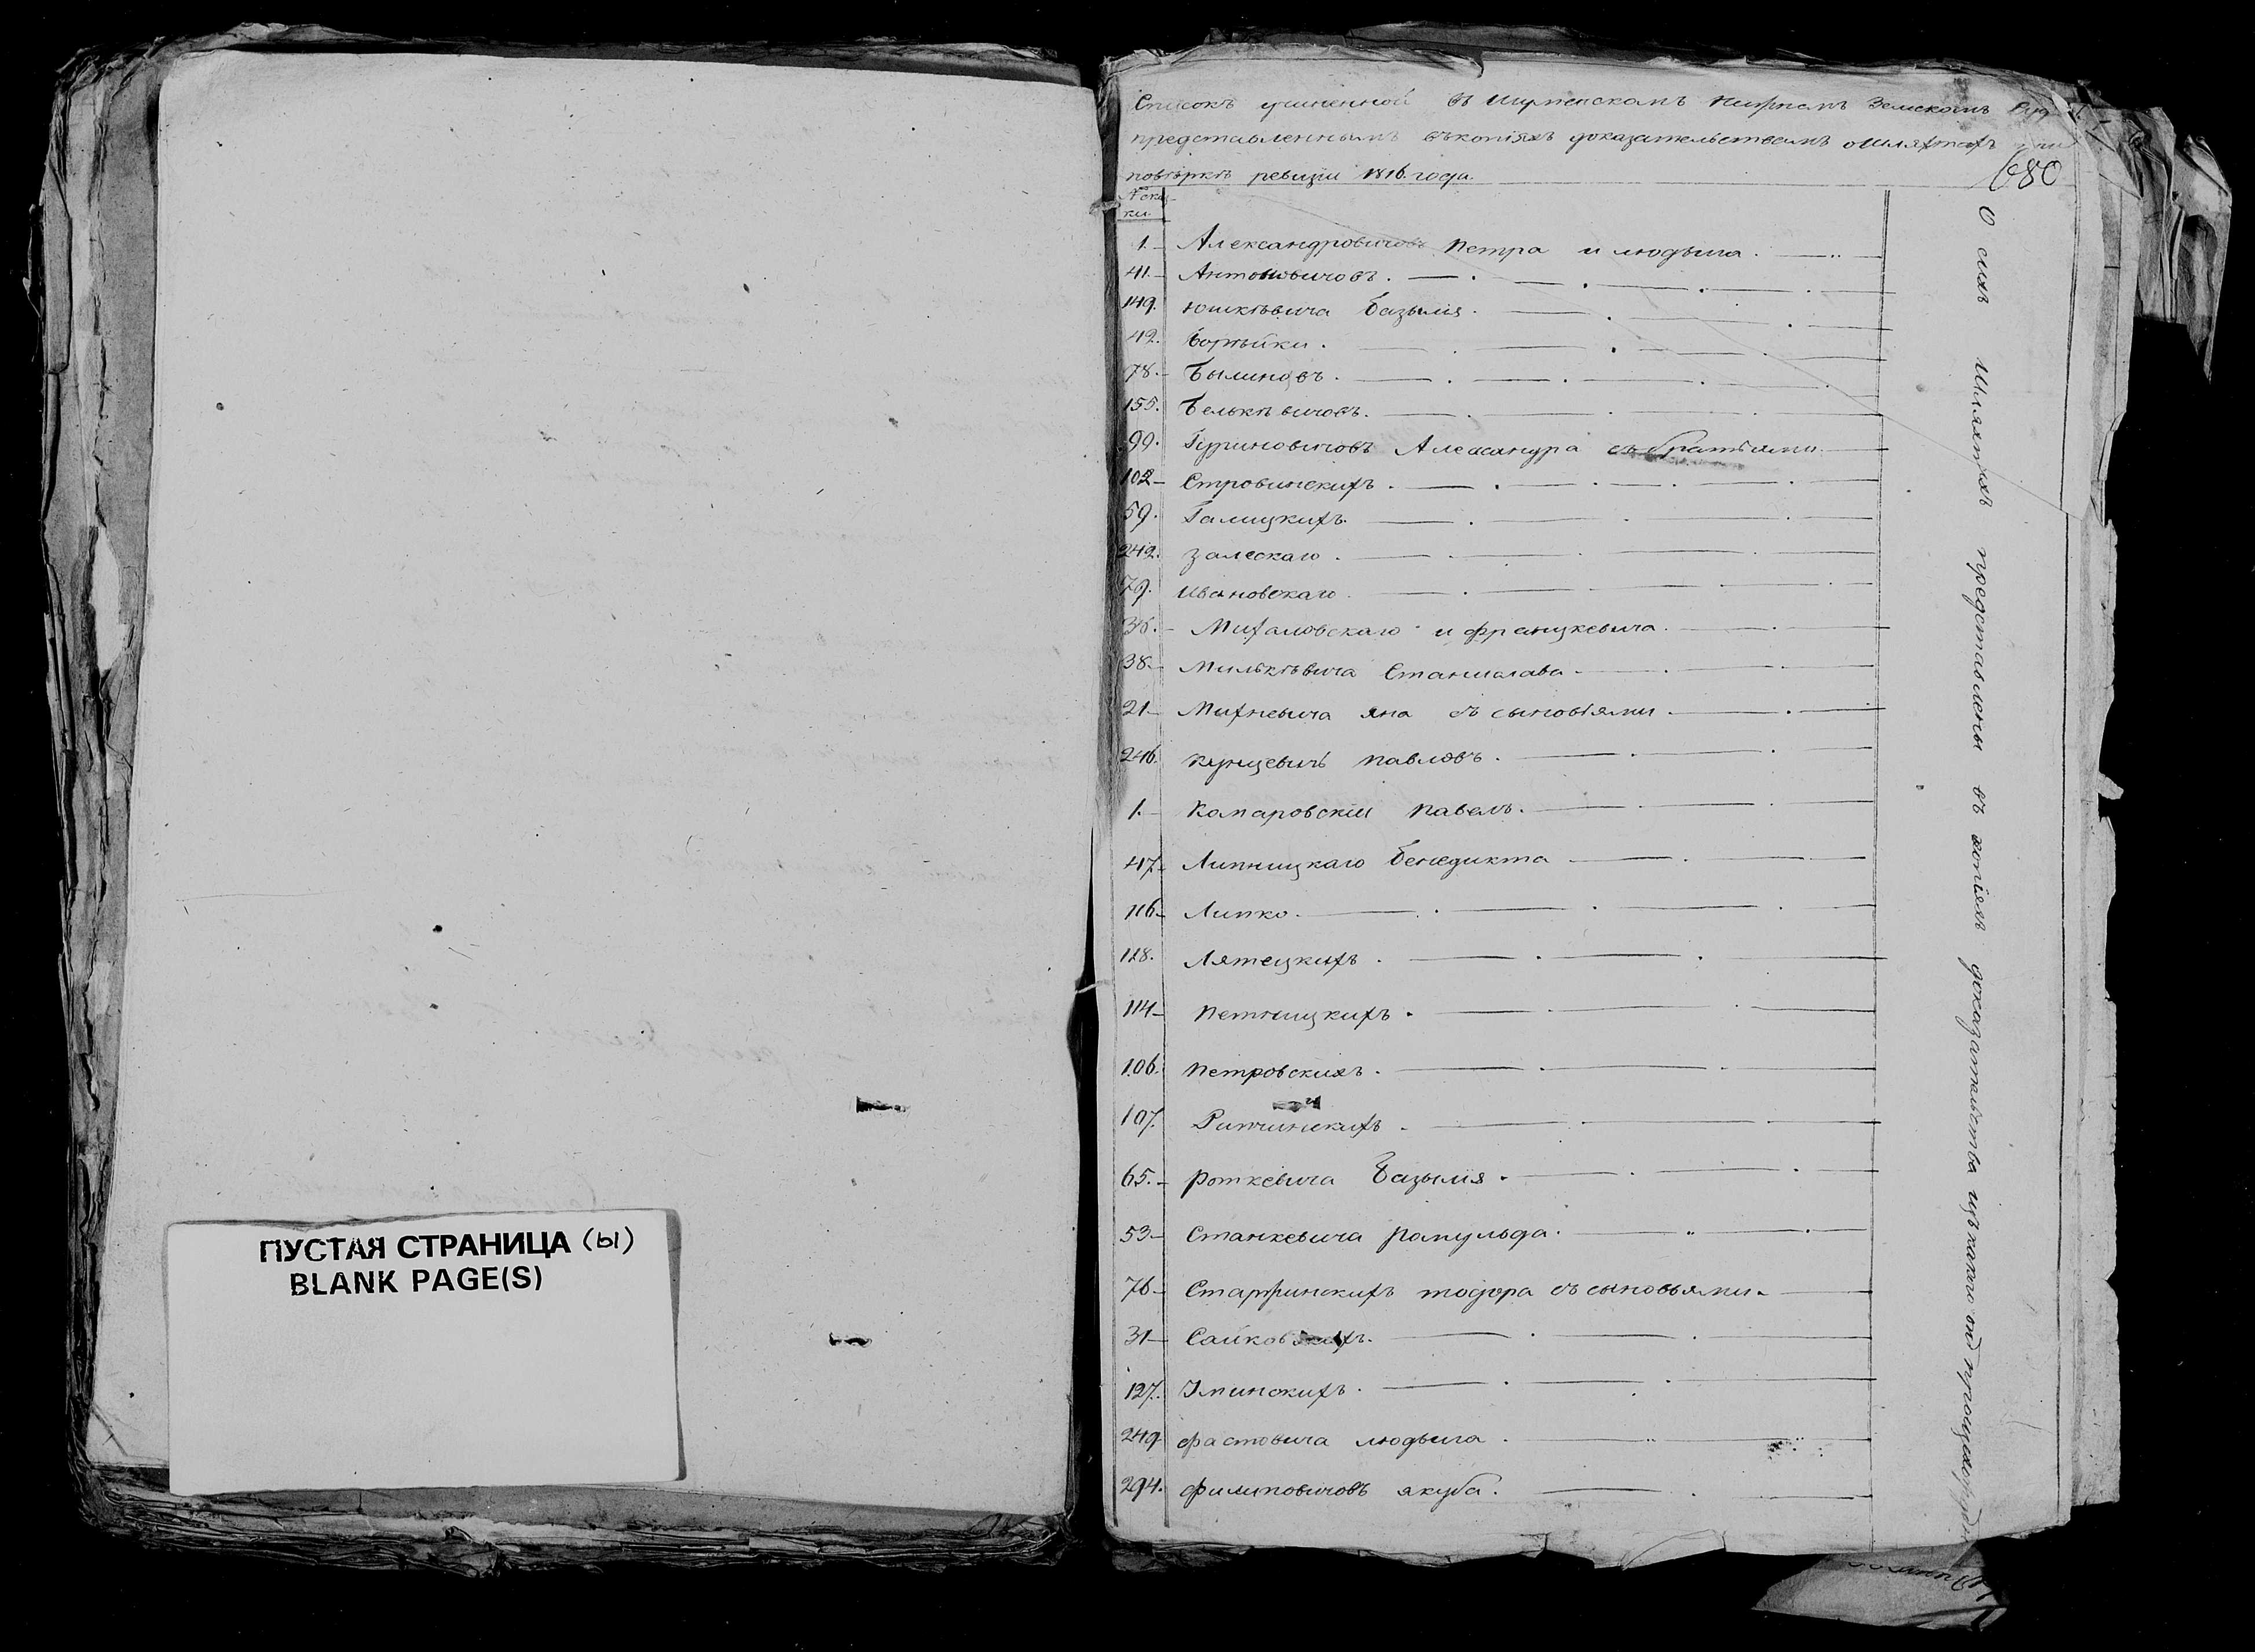 ПУСТАЯ СТРАНИЦА (ы)
BLANK PAGE(S)
Списокъ учиненной въ Игуменскомъ Нижнемъ Земскомъ
представленнымъ въ копіяхъ доказательствамъ о шляхтахъ
повѣркѣ ревизіи 1816. года.
680
1. Александровичовъ Петра и Людвига.
41. Антоновичовъ.
149. Юшкѣвича Базылія.
42.
78. Былиновъ.
155. Белькѣвичовъ.
99. Гуриновичовъ Александра съ братьями.
102 Стровинскихъ.
59. Галицкихъ.
242. Залескаго.
79. Ивановскаго.
36. Михаловскаго и Францкевича.
38. Милькѣвича Станислава.
21. Михневича Яна съ сыновіями.
246. Кунцевичъ Павловъ.
1. Комаровскій Павелъ.
47. Липницкаго Бенедикта
116. Липко.
118. Лятецкихъ.
114 Петницкихъ.
106. Петровскихъ.
107. Рипчинскихъ.
65. Роткевича Базылія.
53 Станкевича Ромульда.
76 Старжинскихъ Тодора съ сыновьями.
31 Сайковскихъ.
127. Уминскихъ.
249. Фастовича Людвига.
294. Филиповичовъ Якуба.
О сихъ шляхтахъ представлены въ копіяхъ доказательства изъ какого онѣ происхо